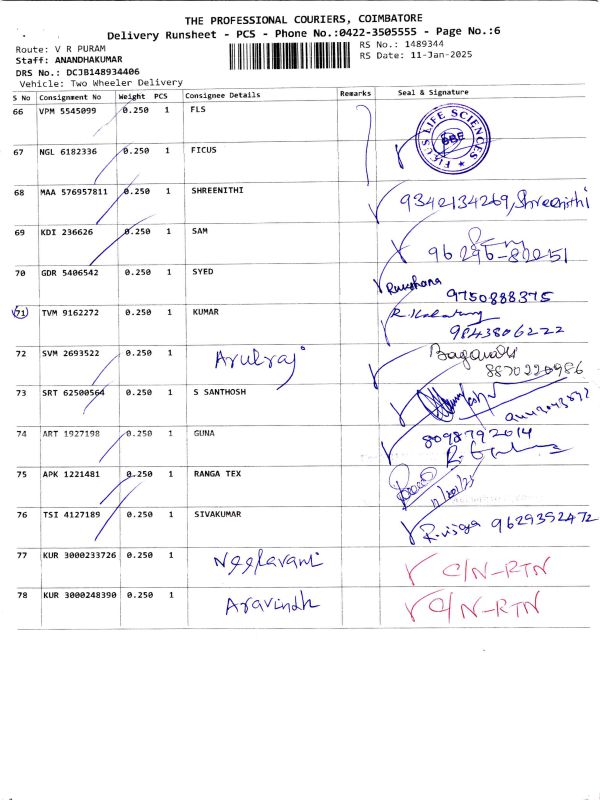 THE PROFESSIONAL COURIERS, COIMBATORE
Delivery Runsheet - PCS - Phone No.:0422-3505555 - Page No.:6
Route: V R PURAM
RS No.: 1489344
Staff: ANANDHAKUMAR
RS Date: 11-Jan-2025
DRS No.: DCJB148934406
Vehicle: Two Wheeler Delivery
S No Consignment No Weight PCS Consignee Details Remarks Seal & Signature
66 VPM 5545099 0.250 1 FLS
67 NGL 6182336 0.250 1 FICUS FICUS LIFE SCIENCES
68 MAA 576957811 0.250 1 SHREENITHI 9342134269, Shreenithi
69 KDI 236626 0.250 1 SAM
70 GDR 5406542 0.250 1 SYED 9750888375
71 TVM 9162272 0.250 1 KUMAR 9843806222
72 SVM 2693522 0.250 1 Arulraj 8870220986
73 SRT 62500564 0.250 1 S SANTHOSH
74 ART 1927198 0.250 1 GUNA 8098792014
75 APK 1221481 0.250 1 RANGA TEX
76 TSI 4127189 0.250 1 SIVAKUMAR 9629352472
77 KUR 3000233726 0.250 1 Neelavani C/N-RTN
78 KUR 3000248390 0.250 1 Aravindh C/N-RTN